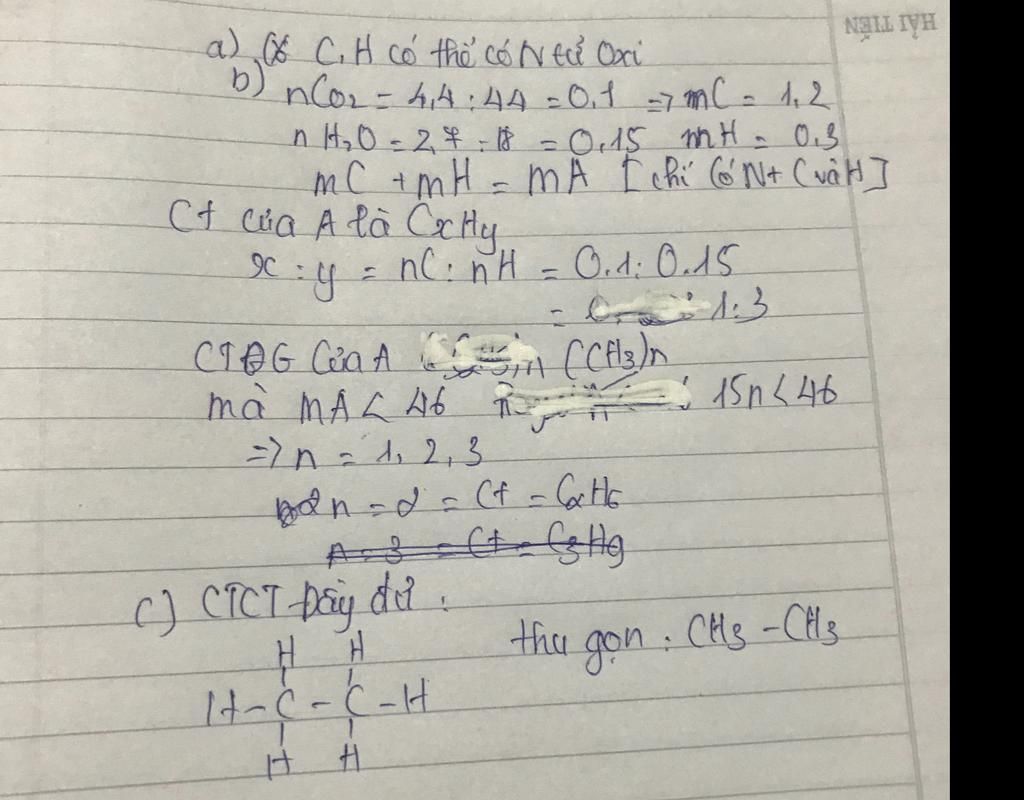 HẢI TIẾN
a) C, H có thể có N tử Oxi
b) nCO2 = 4,4 : 44 = 0,1 => mC = 1,2
nH2O = 2,7 : 18 = 0,15 mH = 0,3
mC + mH = mA [chỉ có N+ C và H]
Ct của A là CxHy
x : y = nC : nH = 0.1 : 0.15
= 1:3
CTĐG của A (CH3)n
mà MA < 46 15n < 46
=> n = 1, 2, 3
n = 2 = Ct = C2H6
n = 3 = Ct = C3H9
c) CTCT Đầy đử :
thu gọn : CH3 - CH3
H H
H - C - C - H
H H